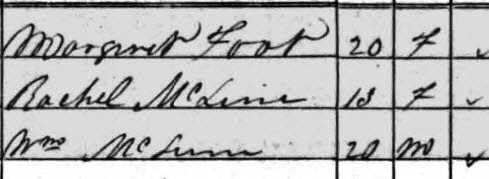 Margaret Foot 20 F ✓
Rachel McLinn 13 F ✓
Wm McLinn 20 M ✓